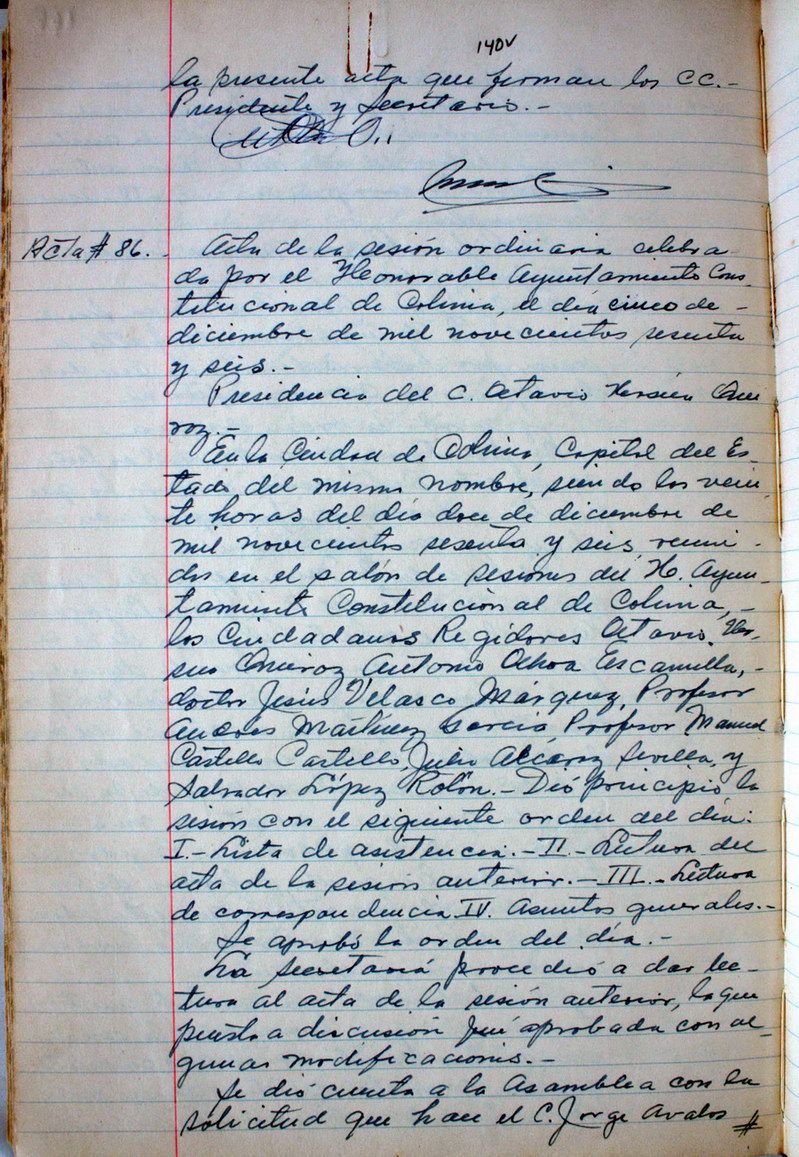 140v
la presente acta que firman los CC.-
Presidente y Secretario.-
Acta # 86.
Acta de la sesión ordinaria celebra
da por el Honorable Ayuntamiento Cons-
titucional de Colima, el día cinco de -
diciembre de mil novecientos sesenta
y seis.-
Presidencia del C. Octavio
roz.-
En la Ciudad de Colima, Capital del Es-
tado del mismo nombre, siendo las vein
te horas del día doce de diciembre de
mil novecientos sesenta y seis, reuni -
dos en el salón de sesiones del H. Ayun-
tamiento Constitucional de Colima, -
los Ciudadanos Regidores Octavio
Antonio Ochoa Escamilla, -
doctor Jesús Velasco Márquez, Profesor
Andres Martínez García, Profesor Manuel
Castello Castello, Julio Alcaraz Sevilla, y
Salvador López Rolón.- Dió principio la
sesión con el siguiente orden del día:
I.- Lista de asistencia.- II.- Lectura del
acta de la sesión anterior.- III.- Lectura
de correspondencia IV. Asuntos generales.-
Se aprobó la orden del día.-
La Secretaría procedió a dar lec-
tura al acta de la sesión anterior, la que
puesta a discusión fué aprobada con al-
gunas modificaciones.-
Se dió cuenta a la Asamblea con la
solicitud que hace el C. Jorge Avalos #